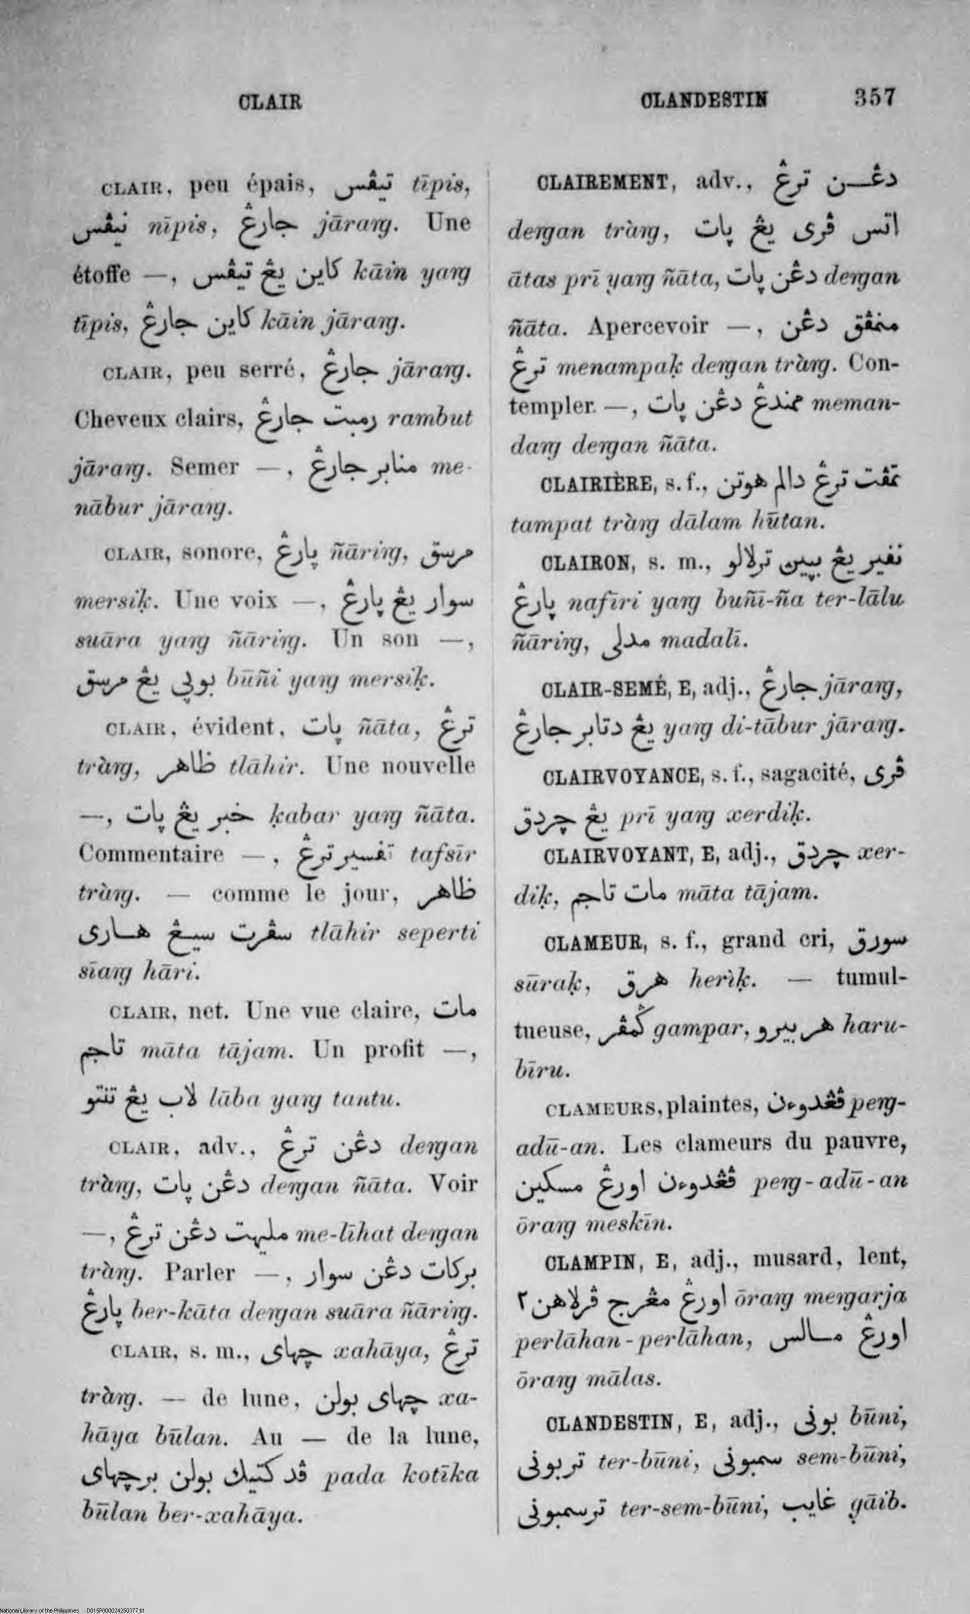 CLAIR
CLANDESTIN 357
CLAIR, peu épais, تيڤس tīpis,
نيڤس nīpis, جارڠ jārarg. Une
étoffe —, كاين يڠ تيڤس kāin yarg
tīpis, كاين جارڠ kāin jārarg.
CLAIR, peu serré, جارڠ jārarg.
Cheveux clairs, رمبت جارڠ rambut
jārarg. Semer —, منابر جارڠ me-
nābur jārarg.
CLAIR, sonore, ڽارڠ ñārirg, مرسق
mersiḳ. Une voix —, سوار يڠ ڽارڠ
suāra yarg ñārirg. Un son —,
بوڽي يڠ مرسق būñi yarg mersiḳ.
CLAIR, évident, ڽات ñāta, ترڠ
tràrg, ظاهر tlāhir. Une nouvelle
—, خبر يڠ ڽات ḳabar yarg ñāta.
Commentaire —, تفسير ترڠ tafsīr
tràrg. — comme le jour, ظاهر
سڤرت سيڠ هاري tlāhir seperti
sīarg hāri.
CLAIR, net. Une vue claire, مات
تاجم māta tājam. Un profit —,
لاب يڠ تنتو lāba yarg tantu.
CLAIR, adv., دڠن ترڠ dergan
tràrg, دڠن ڽات dergan ñāta. Voir
—, مليهت دڠن ترڠ me-līhat dergan
tràrg. Parler —, بركات دڠن سوار
ڽارڠ ber-kāta dergan suāra ñārirg.
CLAIR, s. m., چهاي xahāya, ترڠ
tràrg. — de lune, چهاي بولن xa-
hāya būlan. Au — de la lune,
ڤد كتيك بولن برچهاي pada kotīka
būlan ber-xahāya.
CLAIREMENT, adv., دڠن ترڠ
dergan tràrg, اتس ڤري يڠ ڽات
ātas prī yarg ñāta, دڠن ڽات dergan
ñāta. Apercevoir —, منمڤق دڠن
ترڠ menampaḳ dergan tràrg. Con-
templer —, ممندڠ دڠن ڽات meman-
darg dergan ñāta.
CLAIRIÈRE, s. f., تمڤت ترڠ دالم هوتن
tampat tràrg dālam hūtan.
CLAIRON, s. m., نفير يڠ بڽين ترلالو
ڽارڠ nafīri yarg buñī-ña ter-lālu
ñārirg, مدلي madalī.
CLAIR-SEMÉ, E, adj., جارڠ jārarg,
يڠ دتابر جارڠ yarg di-tābur jārarg.
CLAIRVOYANCE, s. f., sagacité, ڤري
يڠ چردق prī yarg xerdiḳ.
CLAIRVOYANT, E, adj., چردق xer-
diḳ, مات تاجم māta tājam.
CLAMEUR, s. f., grand cri, سورق
sūraḳ, هرق heriḳ. — tumul-
tueuse, گمڤر gampar, هر بيرو haru-
bīru.
CLAMEURS, plaintes, ڤڠدوءن perg-
adū-an. Les clameurs du pauvre,
ڤڠدوءن اورڠ مسكين perg-adū-an
ōrarg meskīn.
CLAMPIN, E, adj., musard, lent,
اورڠ مڠرج ڤرلاهن٢ ōrarg mergarja
perlāhan-perlāhan, اورڠ مالس
ōrarg mālas.
CLANDESTIN, E, adj., بوني būni,
تربوني ter-būni, سمبوني sem-būni,
ترسمبوني ter-sem-būni, غايب gāib.
National Library of the Philippines